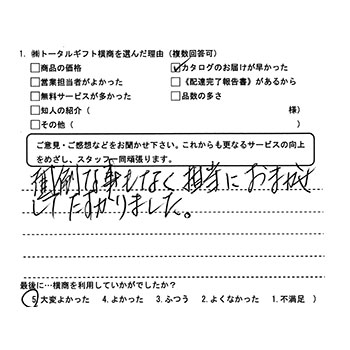 1. ㈱トータルギフト横商を選んだ理由（複数回答可）
□商品の価格 ☑カタログのお届けが早かった
□営業担当者がよかった □《配達完了報告書》があるから
□無料サービスが多かった □品数の多さ
□知人の紹介（ 様）
□その他（ ）
ご意見・ご感想などをお聞かせ下さい。これからも更なるサービスの向上
をめざし、スタッフ一同頑張ります。
面倒な事もなく担当におまかせ
してたすかりました。
最後に…横商を利用していかがでしたか？
5.大変よかった 4.よかった 3.ふつう 2.よくなかった 1.不満足 ）